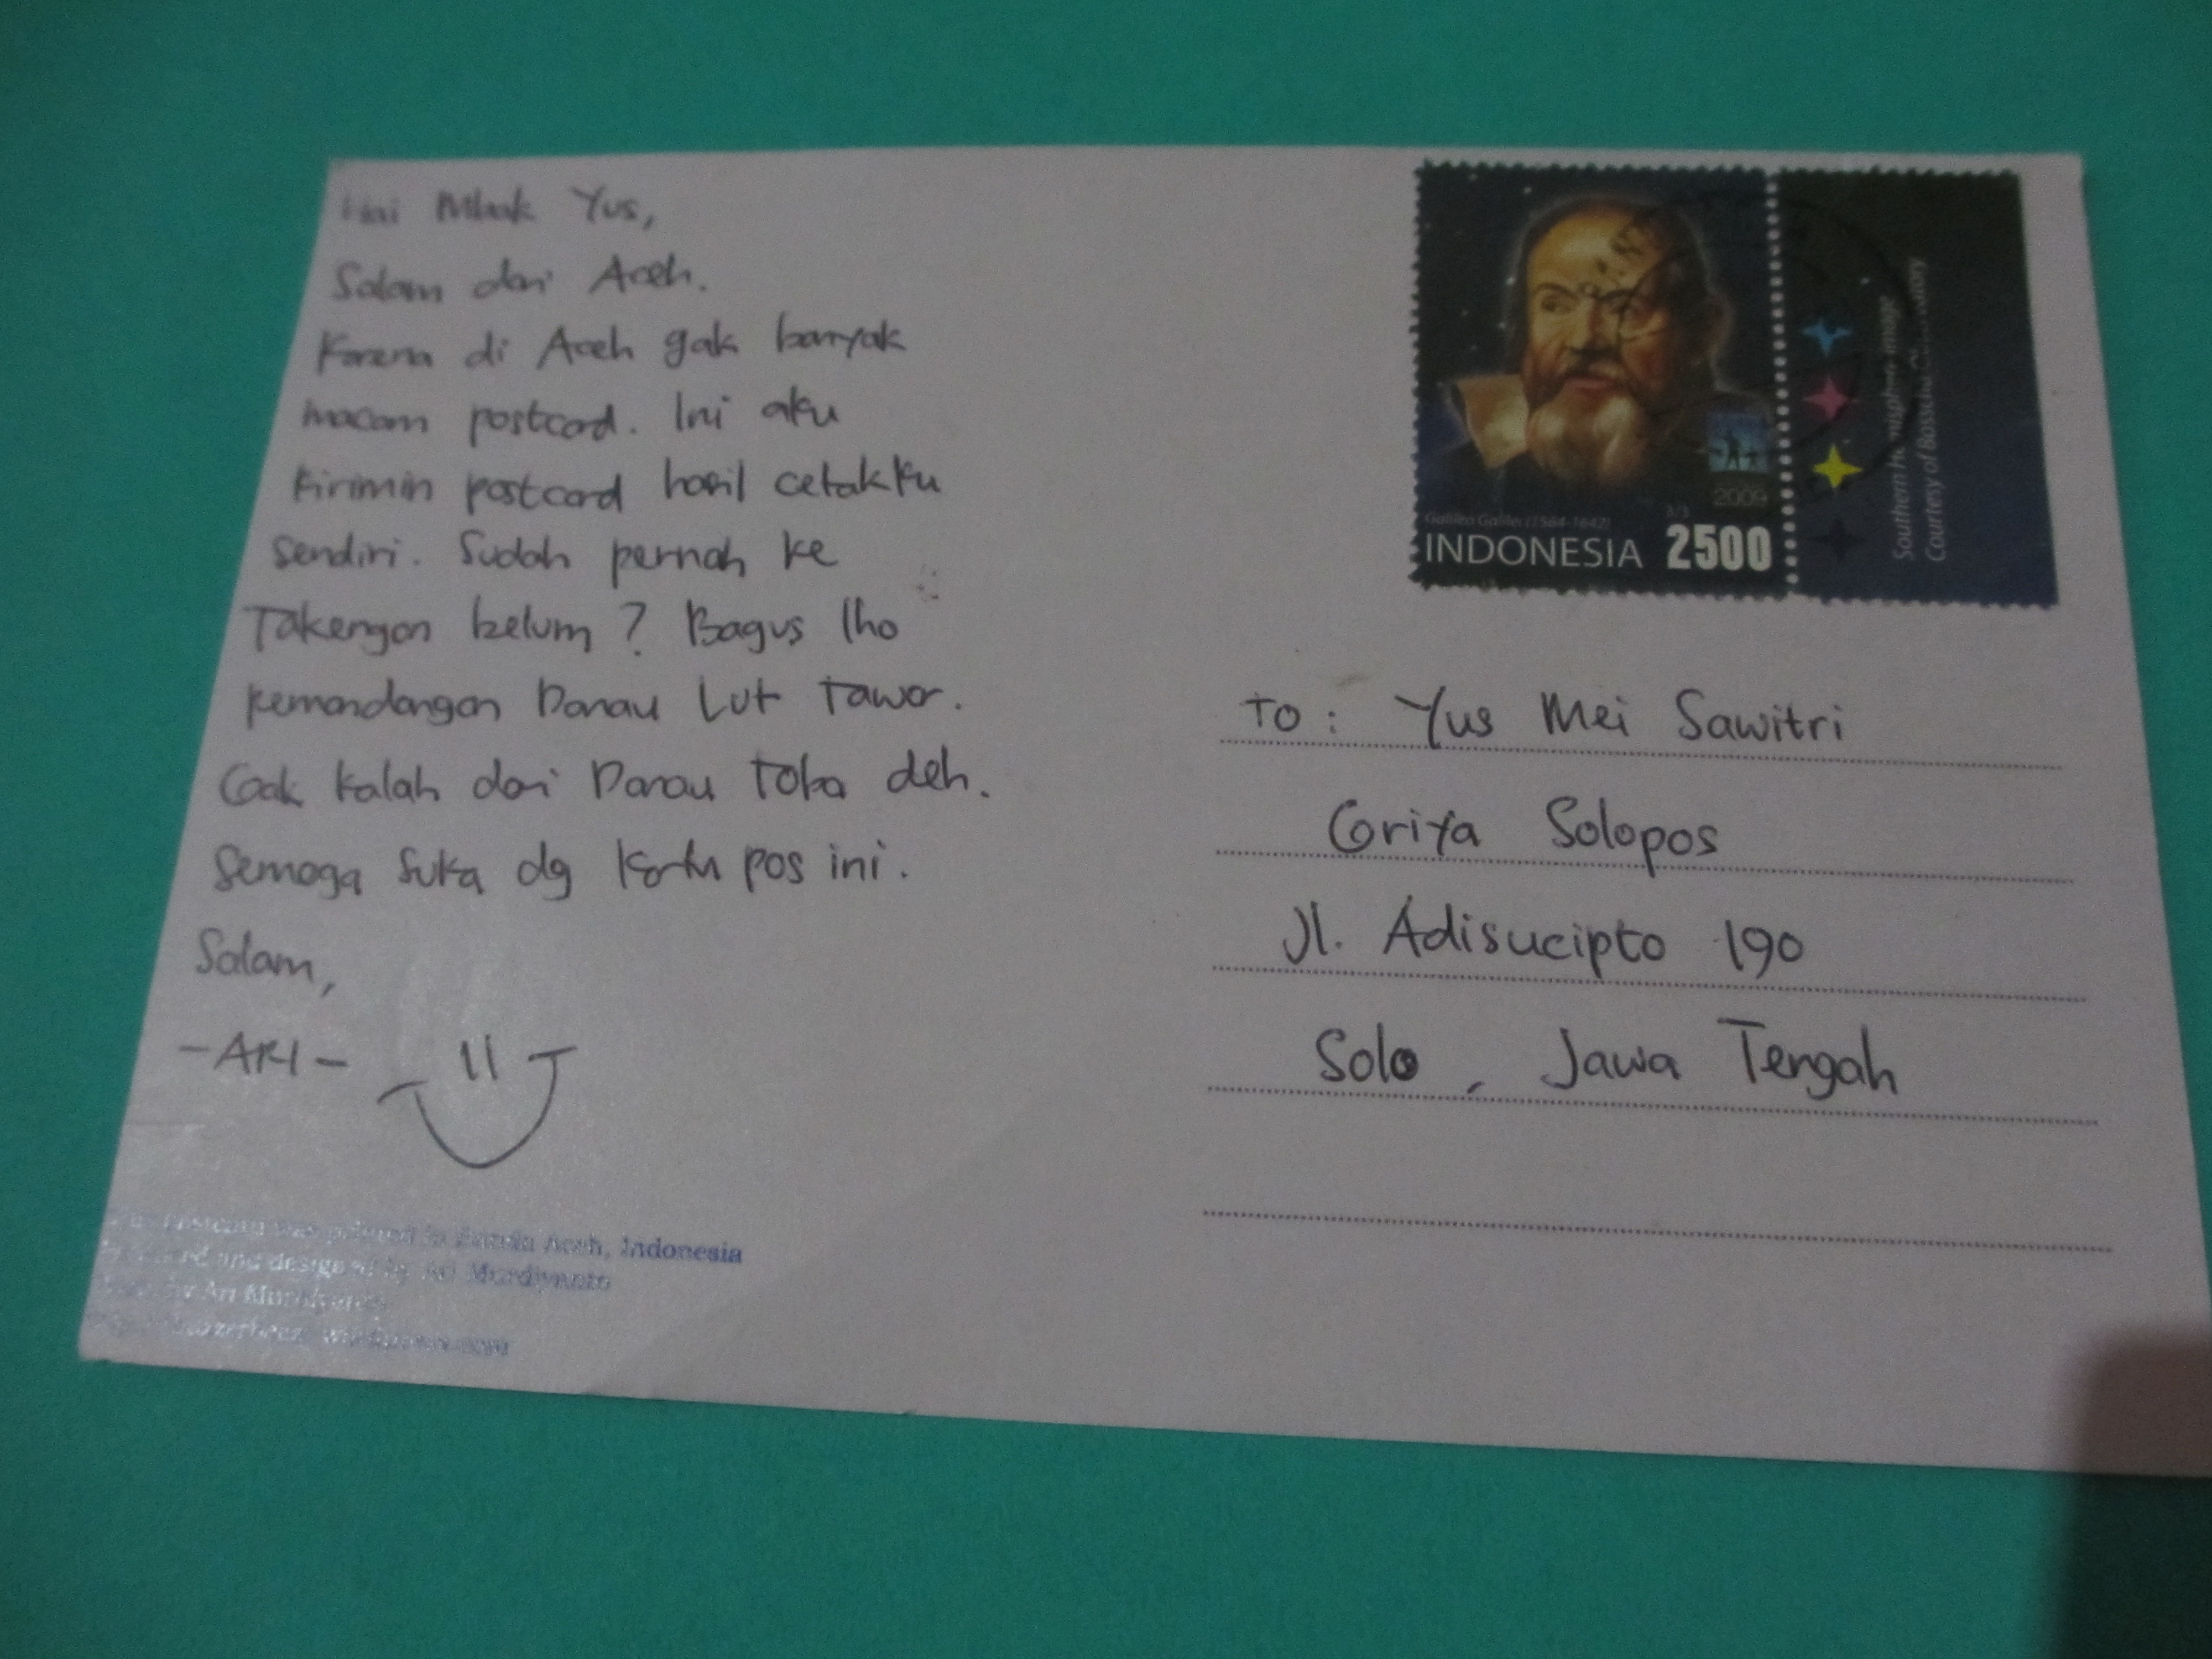 Hai Mbak Yus,
Salam dari Aceh.
Karena di Aceh gak banyak
macam postcard. Ini aku
kirimin postcard hasil cetakku
sendiri. Sudah pernah ke
Takengon belum? Bagus lho
pemandangan Danau Lut Tawar.
Gak kalah dari Danau Toba deh.
Semoga suka dg kartu pos ini.
Salam,
-ARI-
postcard was printed in Banda Aceh, Indonesia
and designed by Ari Murdiyanto
by Ari Murdiyanto
Galileo Galilei (1564-1642)
2009
3/3
INDONESIA 2500
Southern hemisphere image
Courtesy of Bosscha Observatory
To : Yus Mei Sawitri
Griya Solopos
Jl. Adisucipto 190
Solo, Jawa Tengah